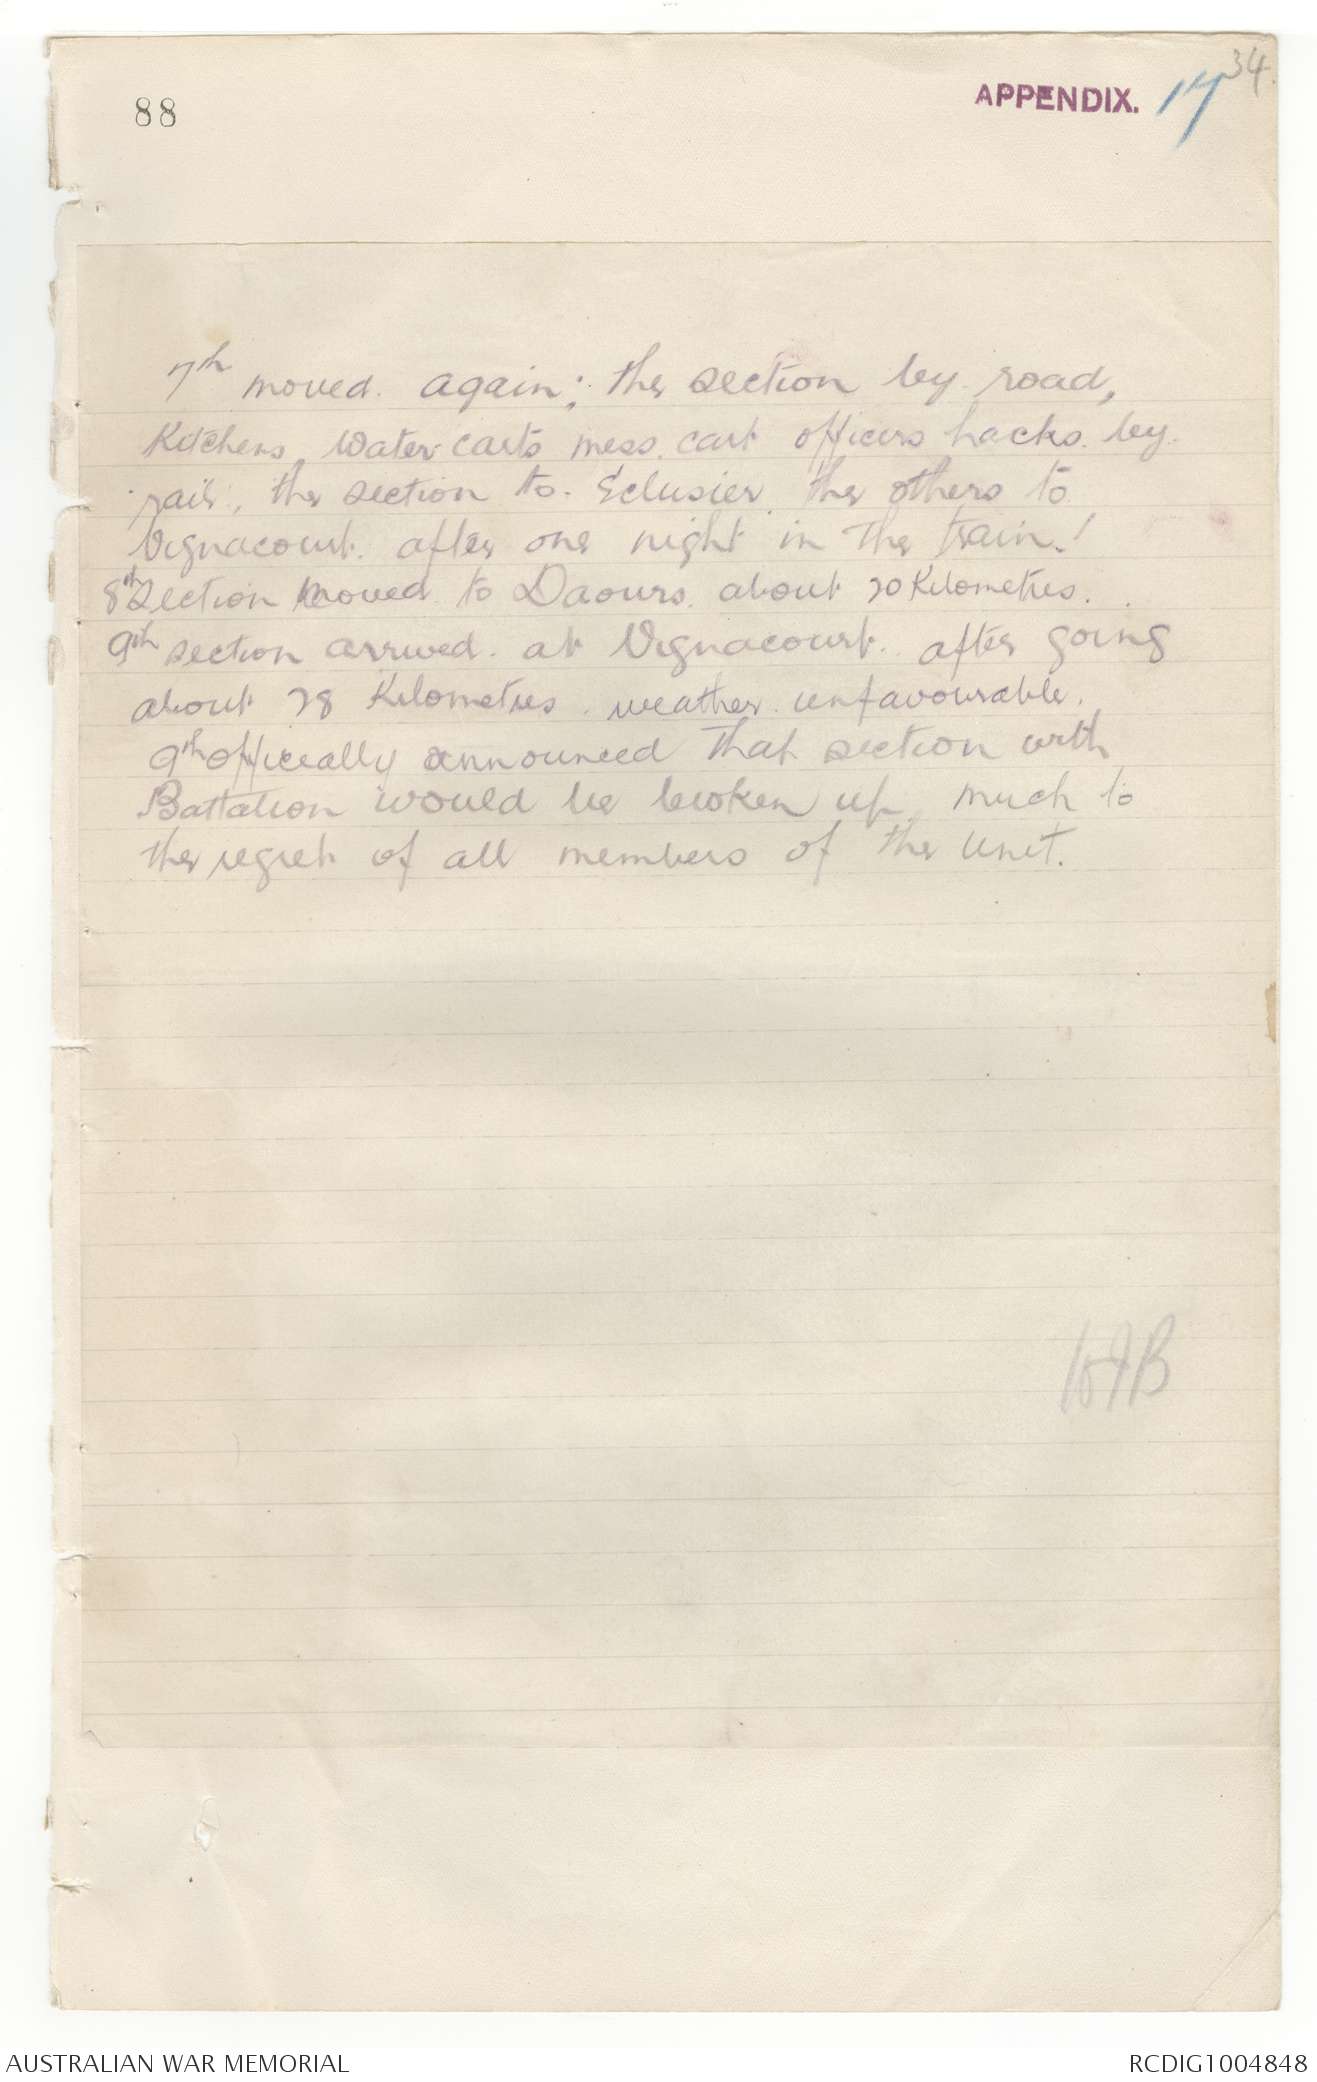 88
APPENDIX. 17
34.
7th moved. again; the section by road,
Kitchens, Water carts mess. cart officers hacks. by
rail, the section to. Eclusier, the others to
Vignacourt. after one night in the train.!
8th Section moved to Daours. about 20 Kilometres.
9th section arrived. at Vignacourt. after going
about 28 Kilometres. weather. unfavourable.
9th officeally announced that section with
Battalion would be broken up, much to
the regret of all members of the Unit.
AUSTRALIAN WAR MEMORIAL
RCDIG1004848